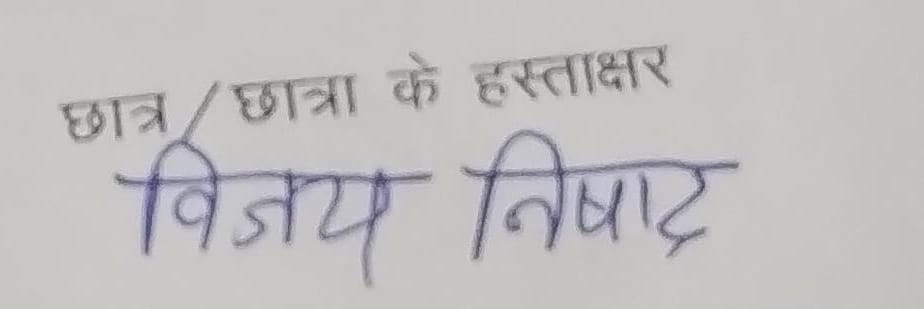 छात्र / छात्रा के हस्ताक्षर
विजय निषाद